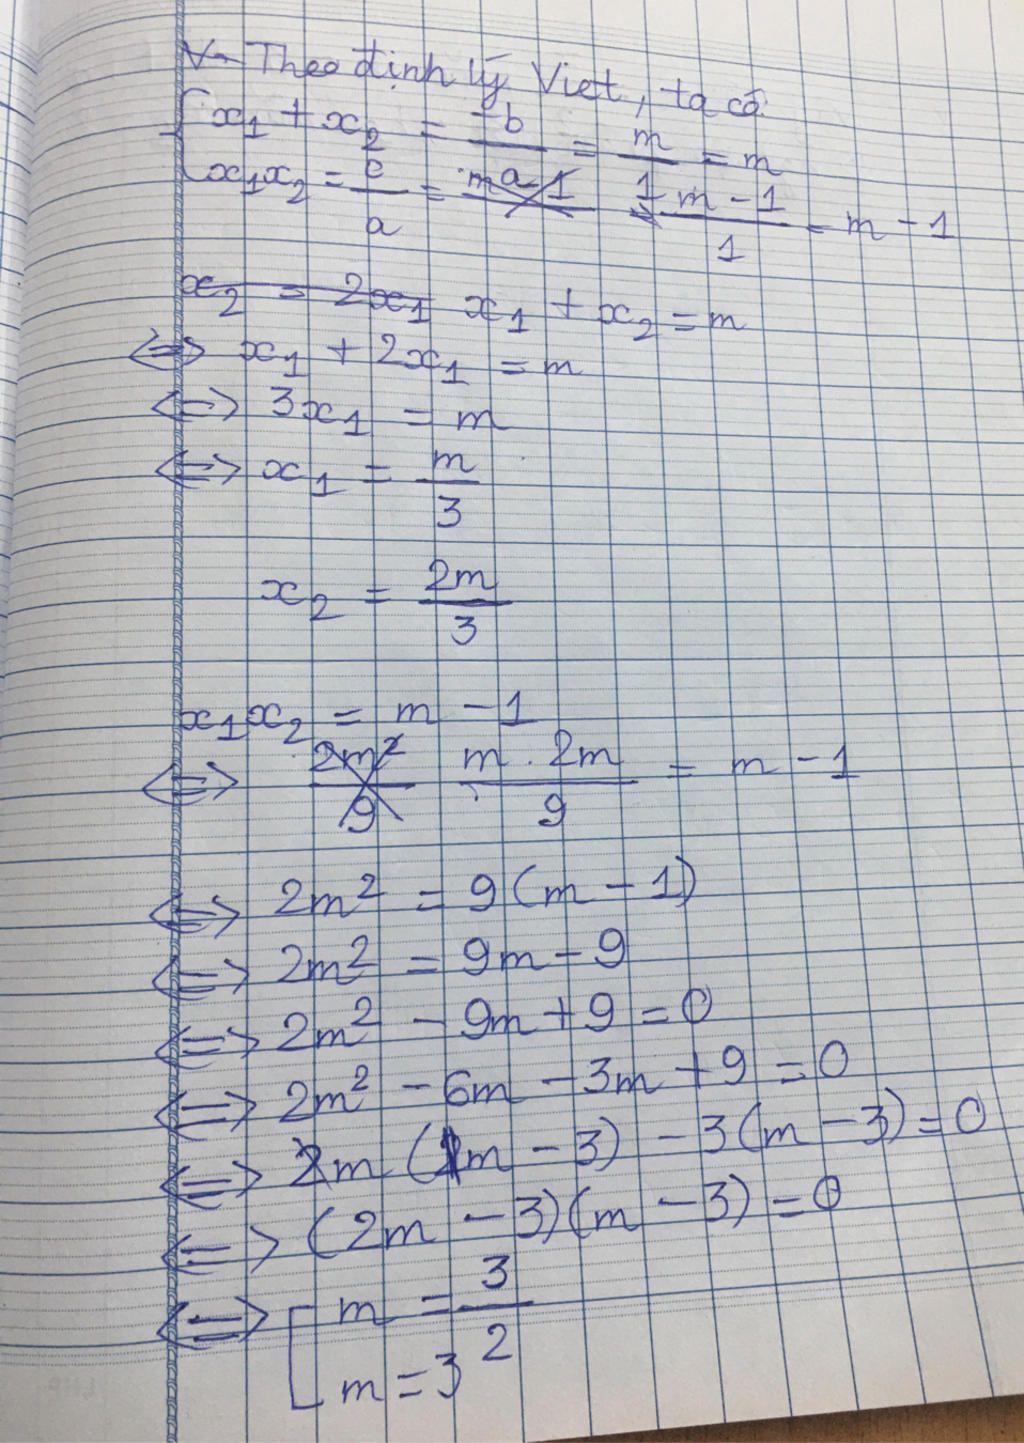 V- Theo định lý Viet, ta có
x₁ + x₂ = -b/a = m/1 = m
x₁x₂ = c/a = m - 1 = m - 1/1 = m - 1
x₂ = 2x₁ x₁ + x₂ = m
⇔ x₁ + 2x₁ = m
⇔ 3x₁ = m
⇔ x₁ = m/3
x₂ = 2m/3
x₁x₂ = m - 1
⇔ 2m²/9 m . 2m/9 = m - 1
⇔ 2m² = 9(m - 1)
⇔ 2m² = 9m - 9
⇔ 2m² - 9m + 9 = 0
⇔ 2m² - 6m - 3m + 9 = 0
⇔ 2m (m - 3) - 3(m - 3) = 0
⇔ (2m - 3)(m - 3) = 0
⇔ [ m = 3/2
m = 3